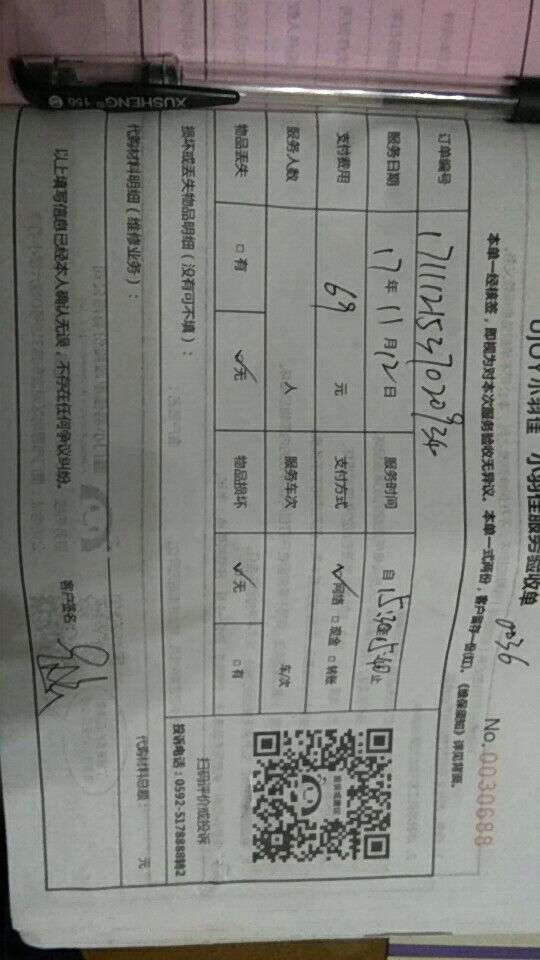 UJOY小羽佳 小羽佳服务验收单
0036
No. 0030688
本单一经核签，即视为对本次服务验收无异议。本单一式两份，客户留存一份(红)。《维保须知》详见背面。
订单编号
服务日期 17年11月12日 服务时间 自 止
支付费用 69 元 支付方式 ☑网络 □现金 □转账
服务人数 人 服务车次 车/次
物品丢失 □有 ☑无 物品损坏 ☑无 □有
扫码评价或投诉
投诉电话：0592-5178888转2
损坏或丢失物品明细（没有可不填）：
代购材料明细（维修业务）：
代购材料总额： 元
以上填写信息已经本人确认无误，不存在任何争议纠纷。 客户签名：
XUSHENG 156